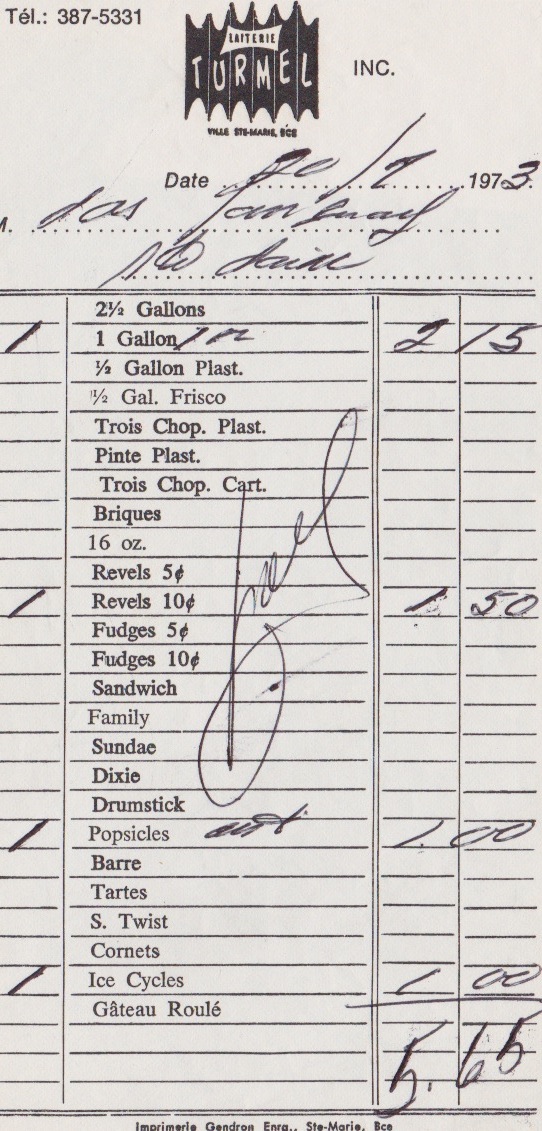 Tél.: 387-5331
LAITERIE
TURMEL
INC.
VILLE STE-MARIE, BCE
Date 20/7 1973
M.
2½ Gallons
1 1 Gallon 2 15
½ Gallon Plast.
½ Gal. Frisco
Trois Chop. Plast.
Pinte Plast.
Trois Chop. Cart.
Briques
16 oz.
Revels 5¢
1 Revels 10¢ 1 50
Fudges 5¢
Fudges 10¢
Sandwich
Family
Sundae
Dixie
Drumstick
1 Popsicles 1.00
Barre
Tartes
S. Twist
Cornets
1 Ice Cycles 1 00
Gâteau Roulé
5.65
Imprimerie Gendron Enrg., Ste-Marie, Bce